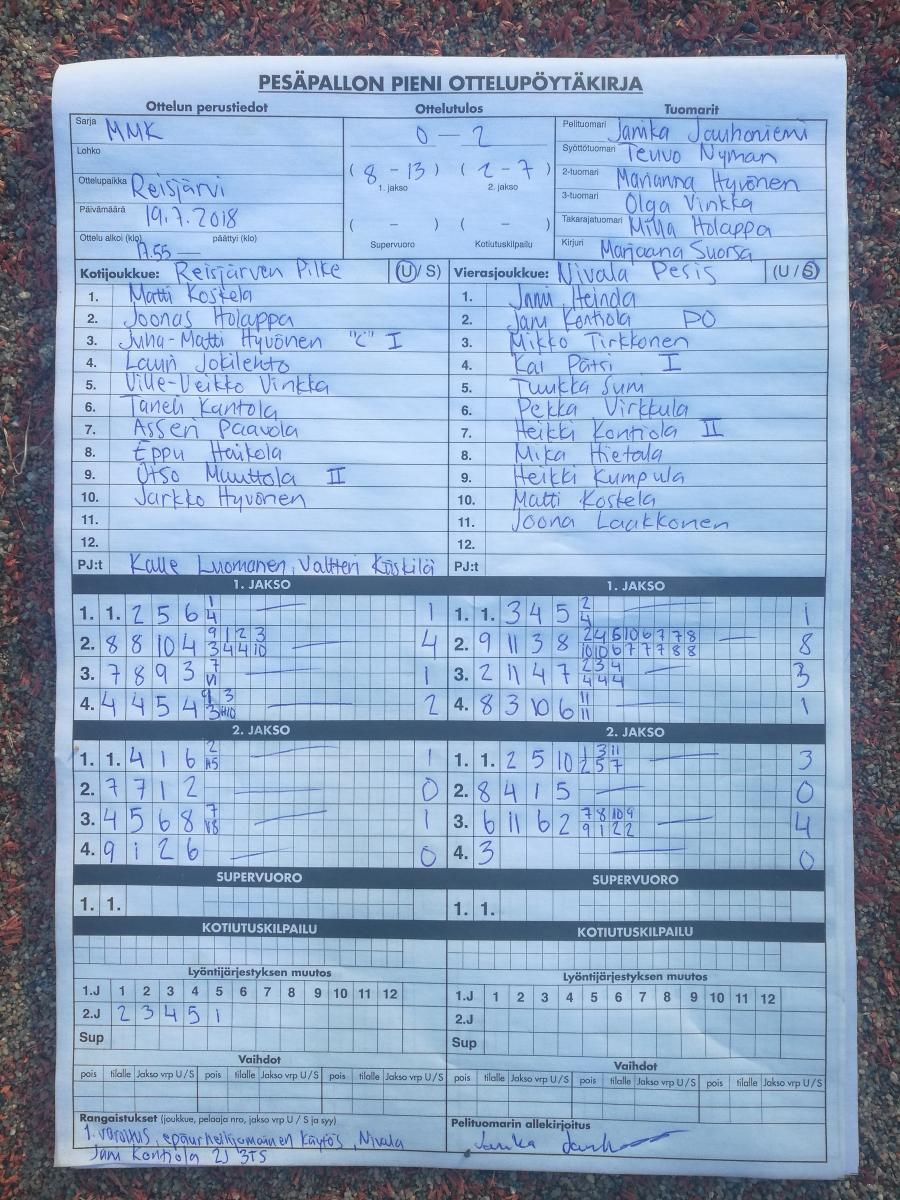 PESÄPALLON PIENI OTTELUPÖYTÄKIRJA
Ottelun perustiedot Ottelutulos Tuomarit
Sarja MMK
Lohko
Ottelupaikka Reisjärvi
Päivämäärä 19.7.2018
Ottelu alkoi (klo) 17.55 — päättyi (klo)
0 – 2
( 8 - 13 ) ( 2 - 7 )
1. jakso 2. jakso
( - ) ( - )
Supervuoro Kotiutuskilpailu
Pelituomari Janika Jauhoniemi
Syöttötuomari Teuvo Nyman
2-tuomari Marianna Hyvönen
3-tuomari Olga Vinkka
Takarajatuomari Milja Holappa
Kirjuri Marjaana Suorsa
Kotijoukkue: Reisjärven Pilke (U/S)
1. Matti Koskela
2. Joonas Holappa
3. Juha-Matti Hyvönen "C" I
4. Lauri Jokilehto
5. Ville-Veikko Vinkka
6. Taneli Kantola
7. Asseri Paavola
8. Eppu Haikola
9. Otso Muuttola II
10. Jarkko Hyvönen
11.
12.
PJ:t Kalle Luomanen, Valtteri Käskilä
Vierasjoukkue: Nivala Pesis (U/S)
1. Jami Heinoja
2. Jani Kontiola PO
3. Mikko Tirkkonen
4. Kai Pätsi I
5. Tuukka Suni
6. Pekka Virkkula
7. Heikki Kontiola II
8. Mika Hietala
9. Heikki Kumpula
10. Matti Koskela
11. Joona Laakkonen
12.
PJ:t
1. JAKSO
1. 1. 2 5 6 1 — 1
4
2. 8 8 10 4 9 1 2 3 — 4
3 4 4 10
3. 7 8 9 3 7 — 1
VI
4. 4 4 5 4 9 3 — 2
3 H10
2. JAKSO
1. 1. 4 1 6 2 — 1
H5
2. 7 7 1 2 — 0
3. 4 5 6 8 7 — 1
V8
4. 9 1 2 6 — 0
SUPERVUORO
1. 1.
KOTIUTUSKILPAILU
Lyöntijärjestyksen muutos
1.J 1 2 3 4 5 6 7 8 9 10 11 12
2.J 2 3 4 5 1
Sup
Vaihdot
pois tilalle Jakso vrp U/S pois tilalle Jakso vrp U/S pois tilalle Jakso vrp U/S
Rangaistukset (joukkue, pelaaja nro, jakso vrp U / S ja syy)
1. varoitus, epäurheilijamainen käytös, Nivala
Jani Kontiola 2J 3TS
1. JAKSO
1. 1. 3 4 5 2 — 1
4
2. 9 11 3 8 2 4 5 10 6 7 7 8 — 8
10 10 6 7 7 7 8 8
3. 2 11 4 7 2 3 4 — 3
4 4 4
4. 8 3 10 6 11 — 1
11
2. JAKSO
1. 1. 2 5 10 1 3 11 — 3
2 5 7
2. 8 4 1 5 — 0
3. 6 11 6 2 7 8 10 9 — 4
9 1 2 2
4. 3 — 0
SUPERVUORO
1. 1.
KOTIUTUSKILPAILU
Lyöntijärjestyksen muutos
1.J 1 2 3 4 5 6 7 8 9 10 11 12
2.J
Sup
Vaihdot
pois tilalle Jakso vrp U/S pois tilalle Jakso vrp U/S pois tilalle Jakso vrp U/S
Pelituomarin allekirjoitus
Janika